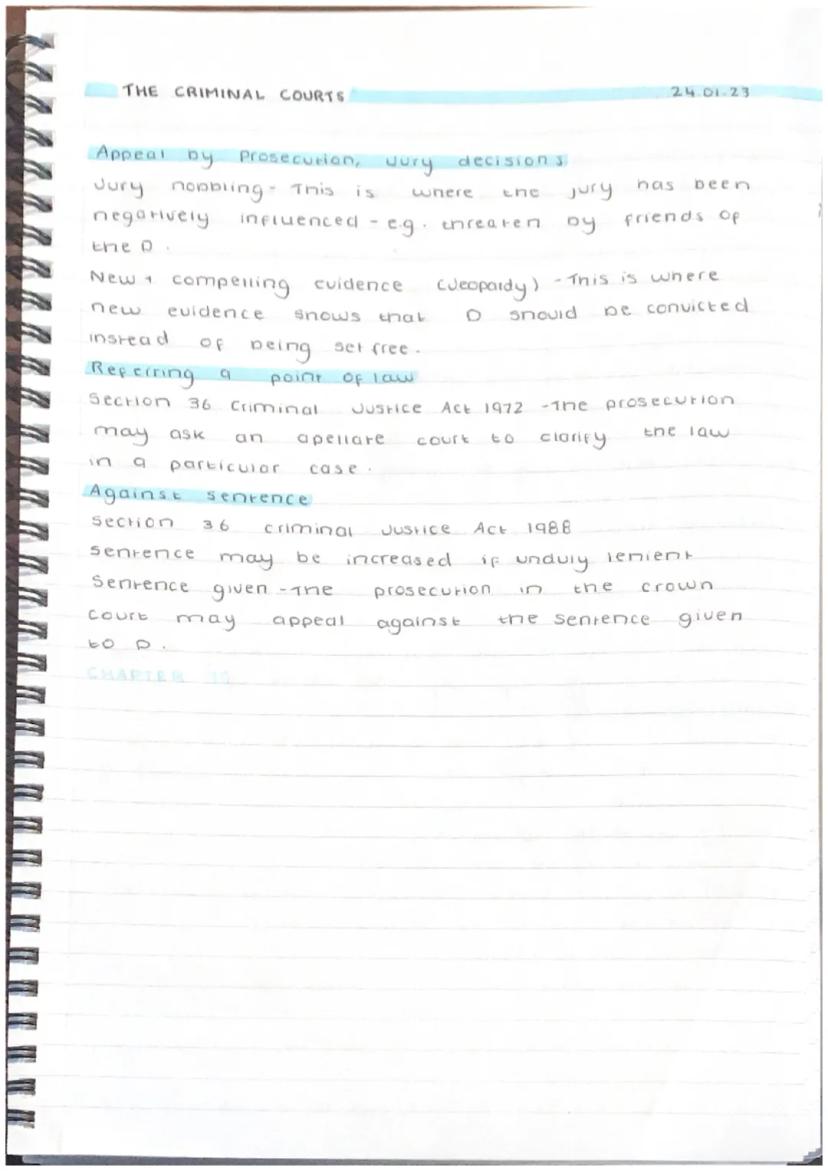 THE CRIMINAL COURTS 24.01.23
Appeal by Prosecution, Jury decisions
Jury nobbling - This is where the jury has been
negatively influenced - e.g. threaten by friends of
the D.
New + compelling evidence (Jeopardy) - This is where
new evidence shows that D should be convicted
instead of being set free.
Referring a point of law
Section 36 Criminal Justice Act 1972 - The prosecution
may ask an apellate court to clarify the law
in a particular case.
Against sentence
Section 36 criminal Justice Act 1988
Sentence may be increased if unduly lenient
Sentence given - The prosecution in the crown
court may appeal against the sentence given
to D.
CHAPTER